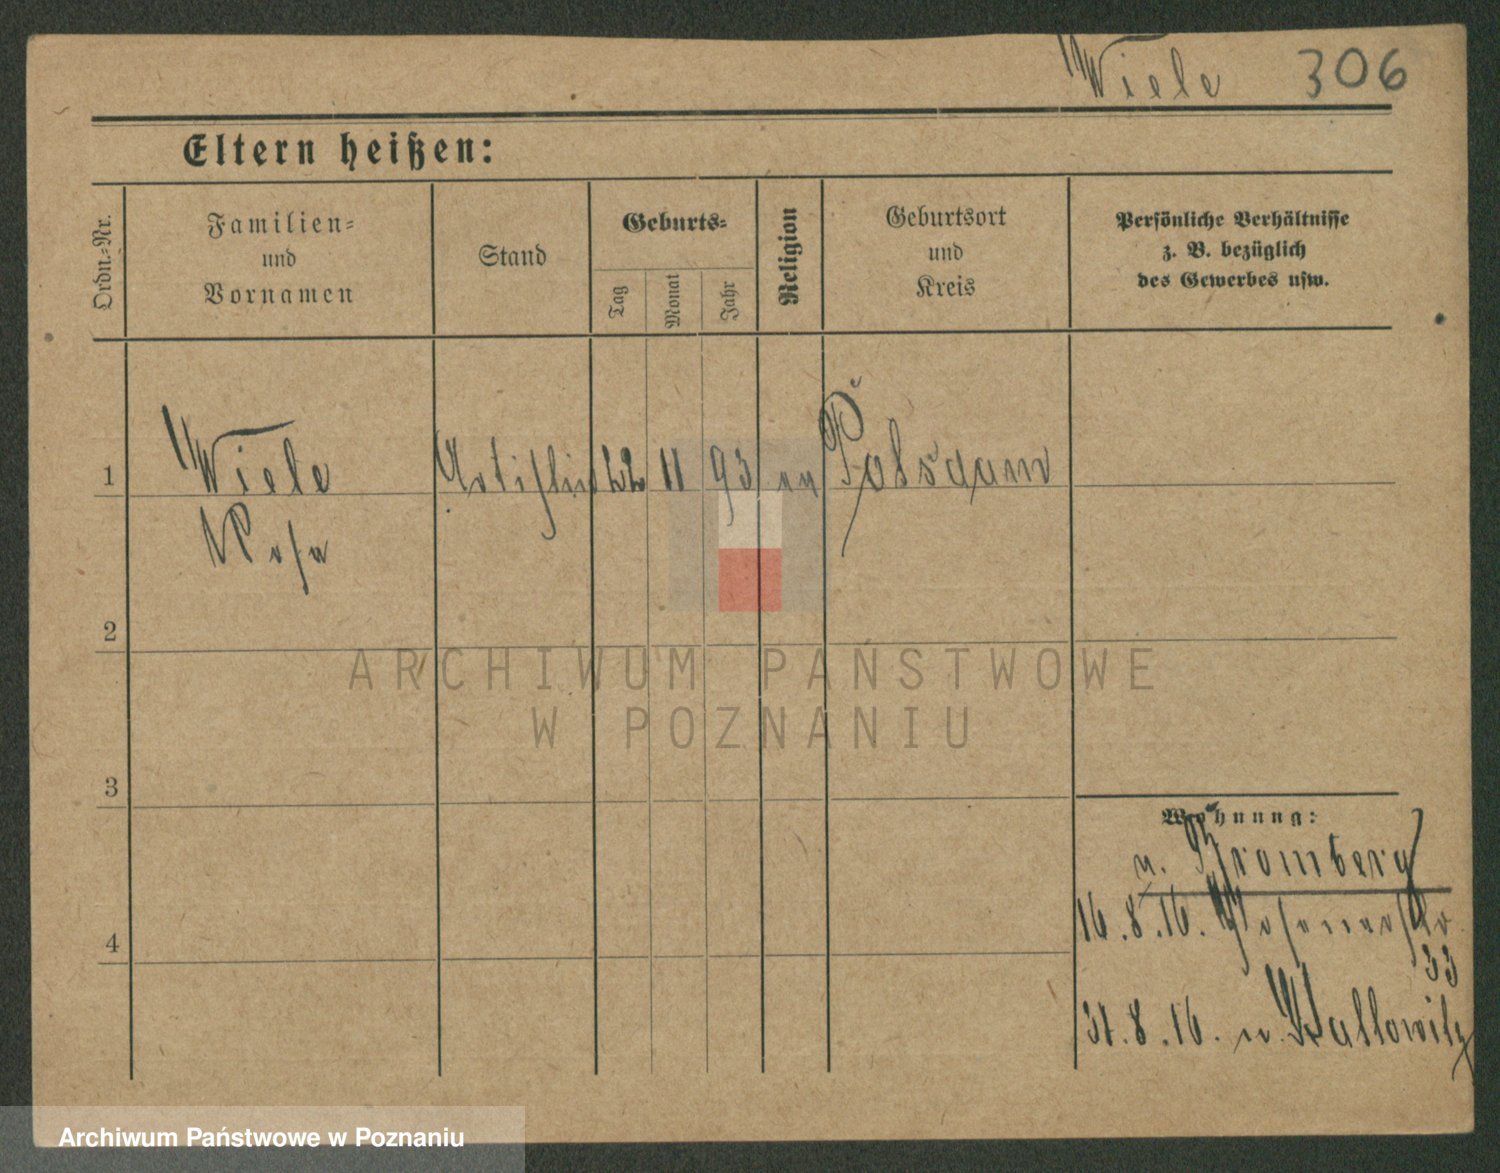 Wiele 306
Eltern heißen:
Ordn.-Nr.
Familien-
und
Vornamen
Stand
Geburts-
Tag
Monat
Jahr
Religion
Geburtsort
und
Kreis
Persönliche Verhältnisse
z. B. bezüglich
des Gewerbes usw.
1 Wiele Artistin 22 11 93 Potsdam
Rosa
2
3
4
Wohnung:
v. Bromberg
16.8.16. Posenerstr.
33
31.8.16. n.
ARCHIWUM PAŃSTWOWE
W POZNANIU
Archiwum Państwowe w Poznaniu